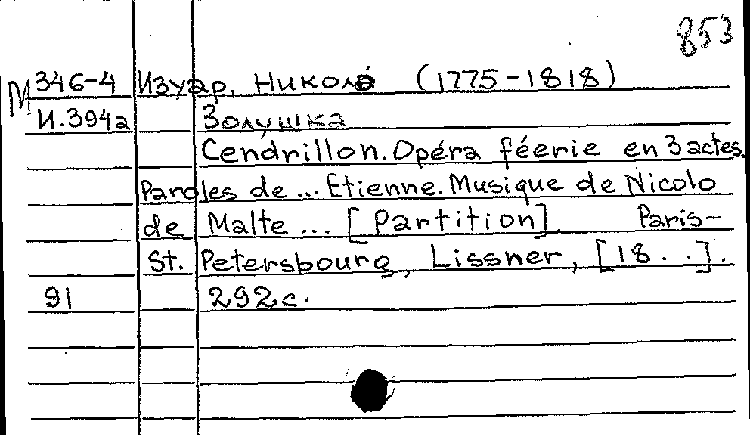 853
М 346-4 Изуар, Николо (1775-1818)
И.394а Золушка
Cendrillon. Opéra féerie en 3 actes.
Paroles de ... Etienne. Musique de Nicolo
de Malte ... [Partition] Paris-
St. Petersbourg, Lissner, [18 . .].
91 292 с.